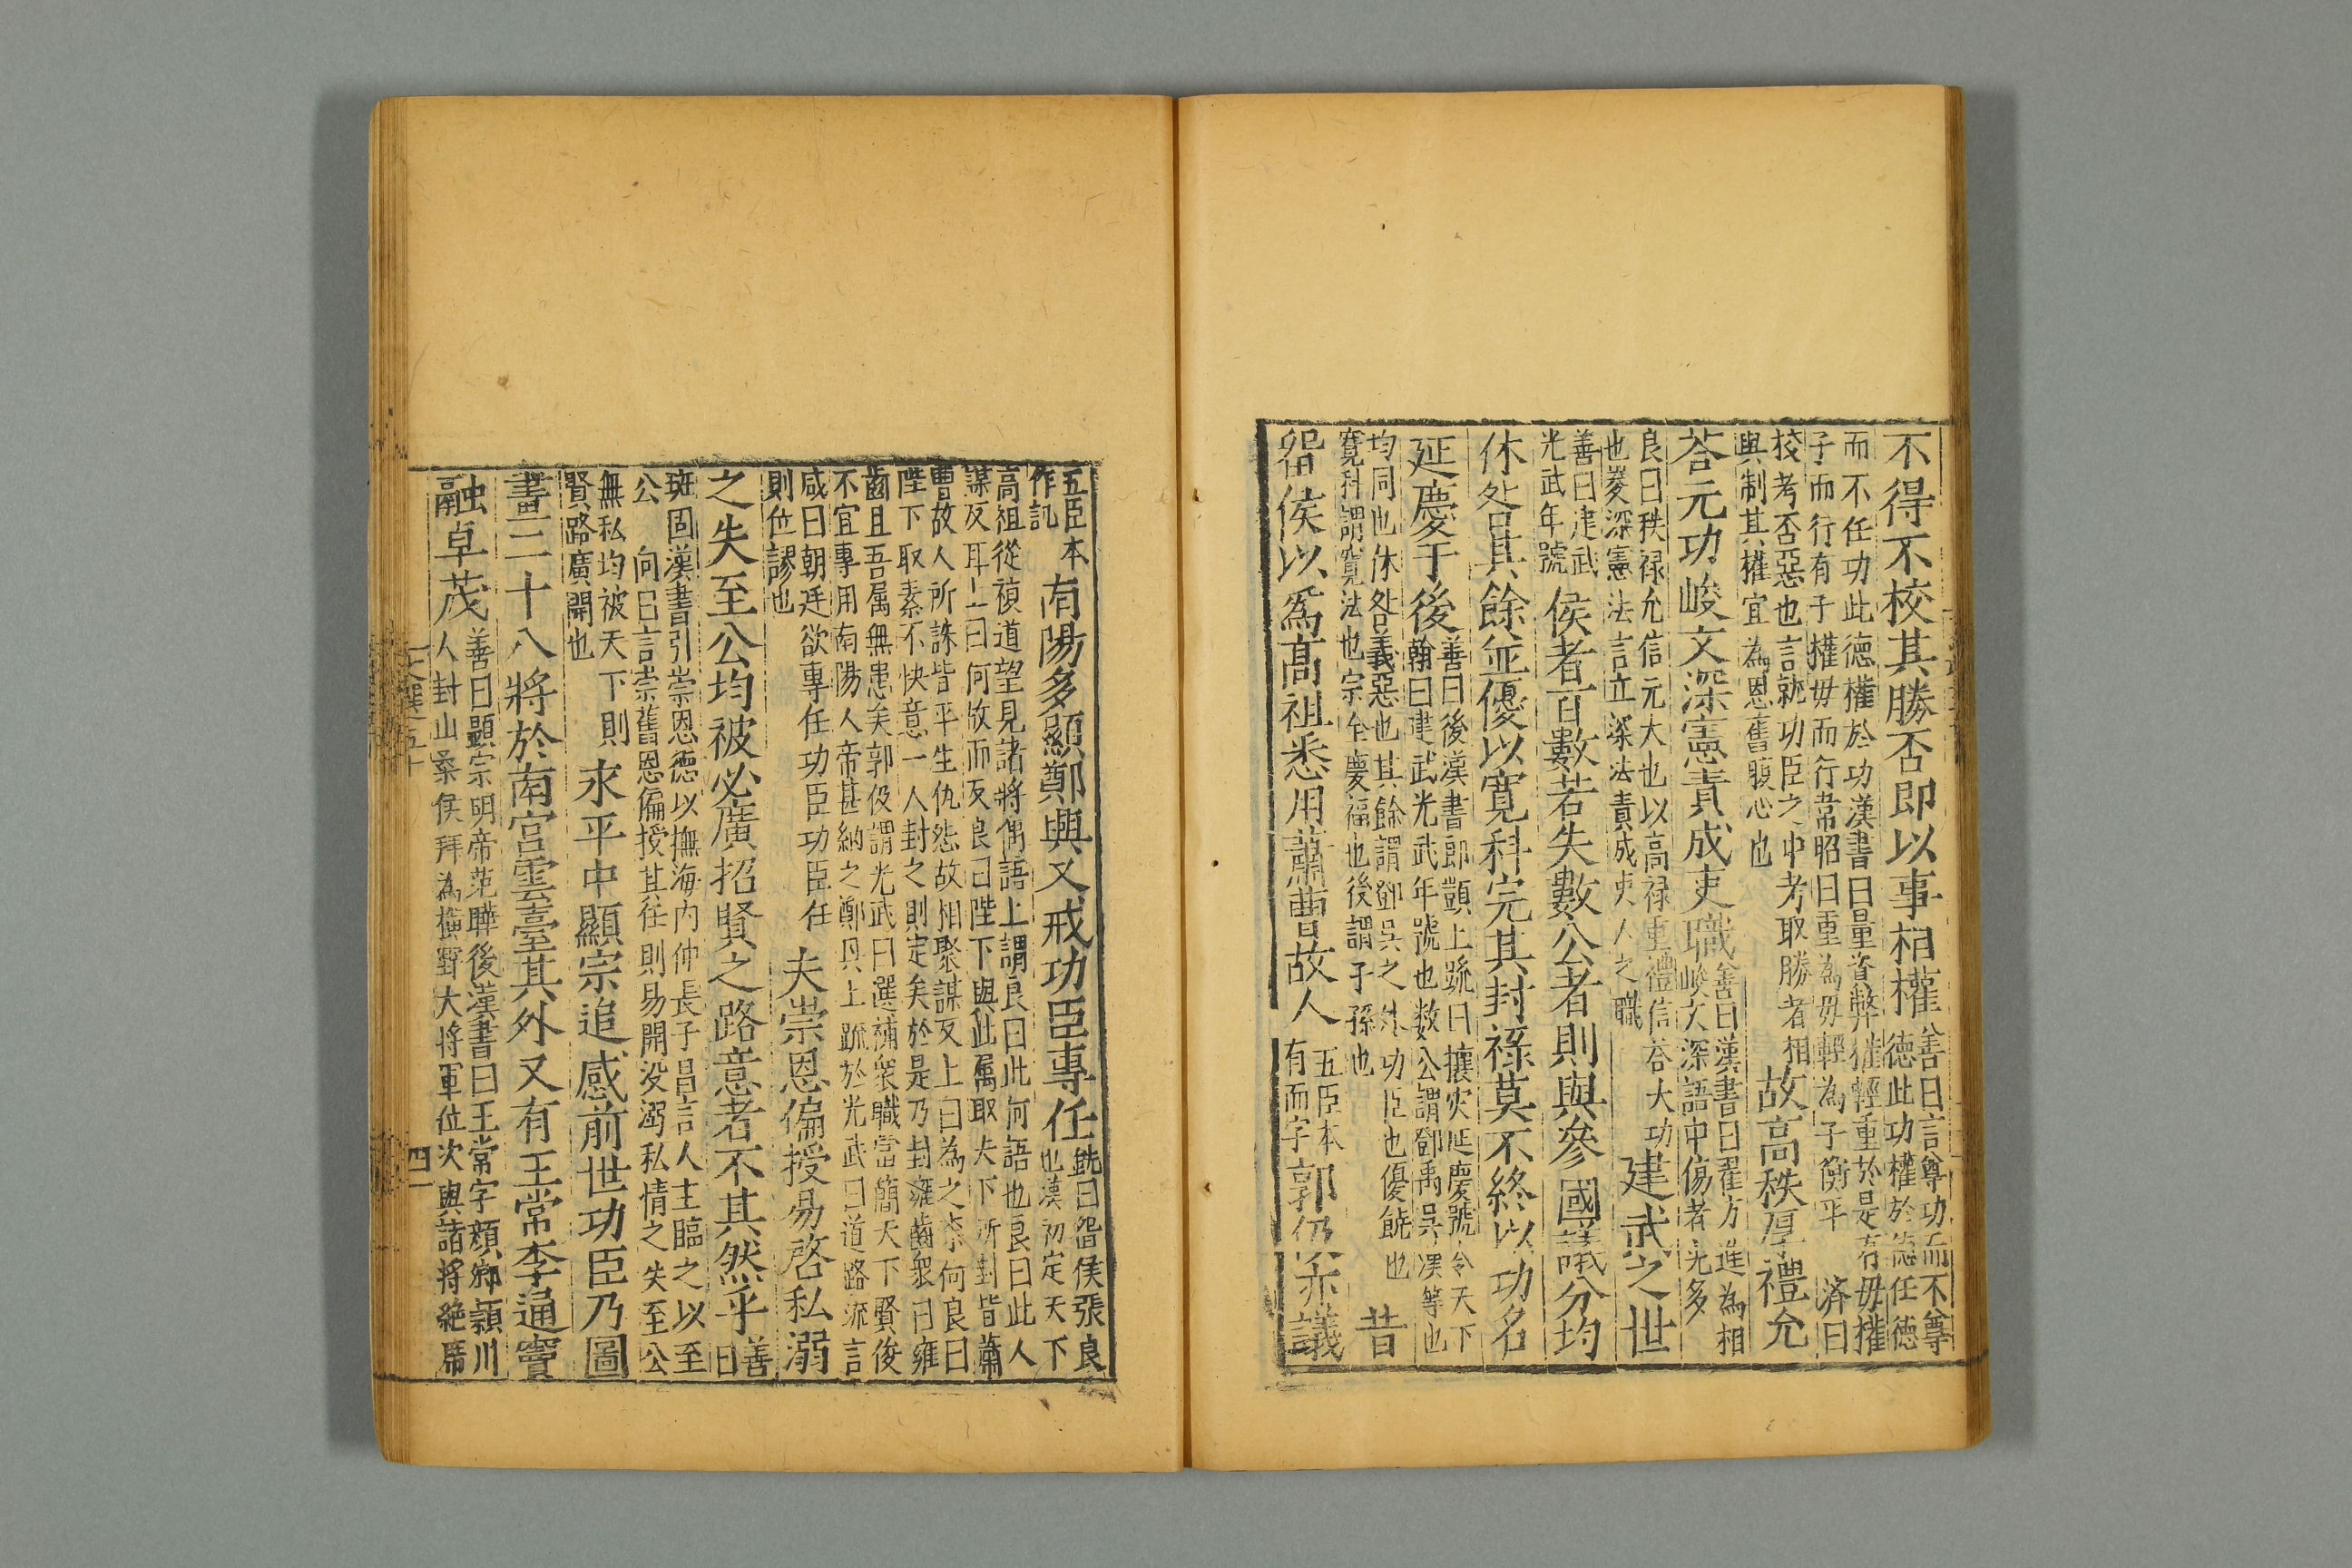 不得不校其勝否即以事相權善曰言尊功而不尊
德此功權於德任德
而不任功此德權於功漢書曰量資弊權輕重於是有毋權
子而行有子權毋而行韋昭曰重為毋輕為子衡平 濟曰
校考否惡也言就功臣之中考取勝者相
與制其權宜為恩舊腹心也
故高秩厚禮允
荅元功峻文深憲責成吏職善曰漢書曰翟方進為相
峻文深詆中傷者尤多
良曰秩禄允信元大也以高禄重禮信荅大功
也峻深憲法言立深法責成吏人之職
建武之世
善曰建武
光武年號
侯者百數若夫數公者則與參國議分均
休咎其餘並優以寛科完其封祿莫不終以功名
延慶于後善曰後漢書郎顗上疏曰攘灾延慶號令天下
翰曰建武光武年號也数公謂鄧禹吳漢等也
均同也休咎義惡也其餘謂鄧吳之外功臣也優饒也
寛科謂寛法也宗全慶福也後謂子孫也
昔
留侯以為高祖悉用蕭曹故人五臣本
有而字郭伋亦議
五臣本
作訊
南陽多顯鄭興又戒功臣專任銑曰留侯張良
也漢初定天下
高祖從複道望見諸將偶語上謂良曰此何語也良曰此人
謀反耳上曰何故而反良曰陛下與此属取天下所封皆蕭
曹故人所誅皆平生仇怨故相聚謀反上曰為之柰何良曰
陛下取素不快意一人封之則定矣於是乃封雍齒衆曰雍
齒且吾属無患矣郭伋謂光武曰選補衆職當簡天下賢俊
不宜專用南陽人帝甚納之鄭興上疏於光武曰道路流言
咸曰朝廷欲專任功臣功臣任
則位謬也
夫崇恩偏授易啓私溺
之失至公均被必廣招賢之路意者不其然乎善
曰
班固漢書引崇恩德以撫海内仲長子昌言人主臨之以至
公 向曰言崇舊恩偏授其任則易開没溺私情之失至公
無私均被天下則
賢路廣開也
永平中顯宗追感前世功臣乃圖
畫二十八將於南宮雲臺其外又有王常李通竇
融卓茂善曰顯宗明帝范曄後漢書曰王常字顏卿潁川
人封山桑侯拜為橫野大將軍位次與諸將絶席
文選五十
四一